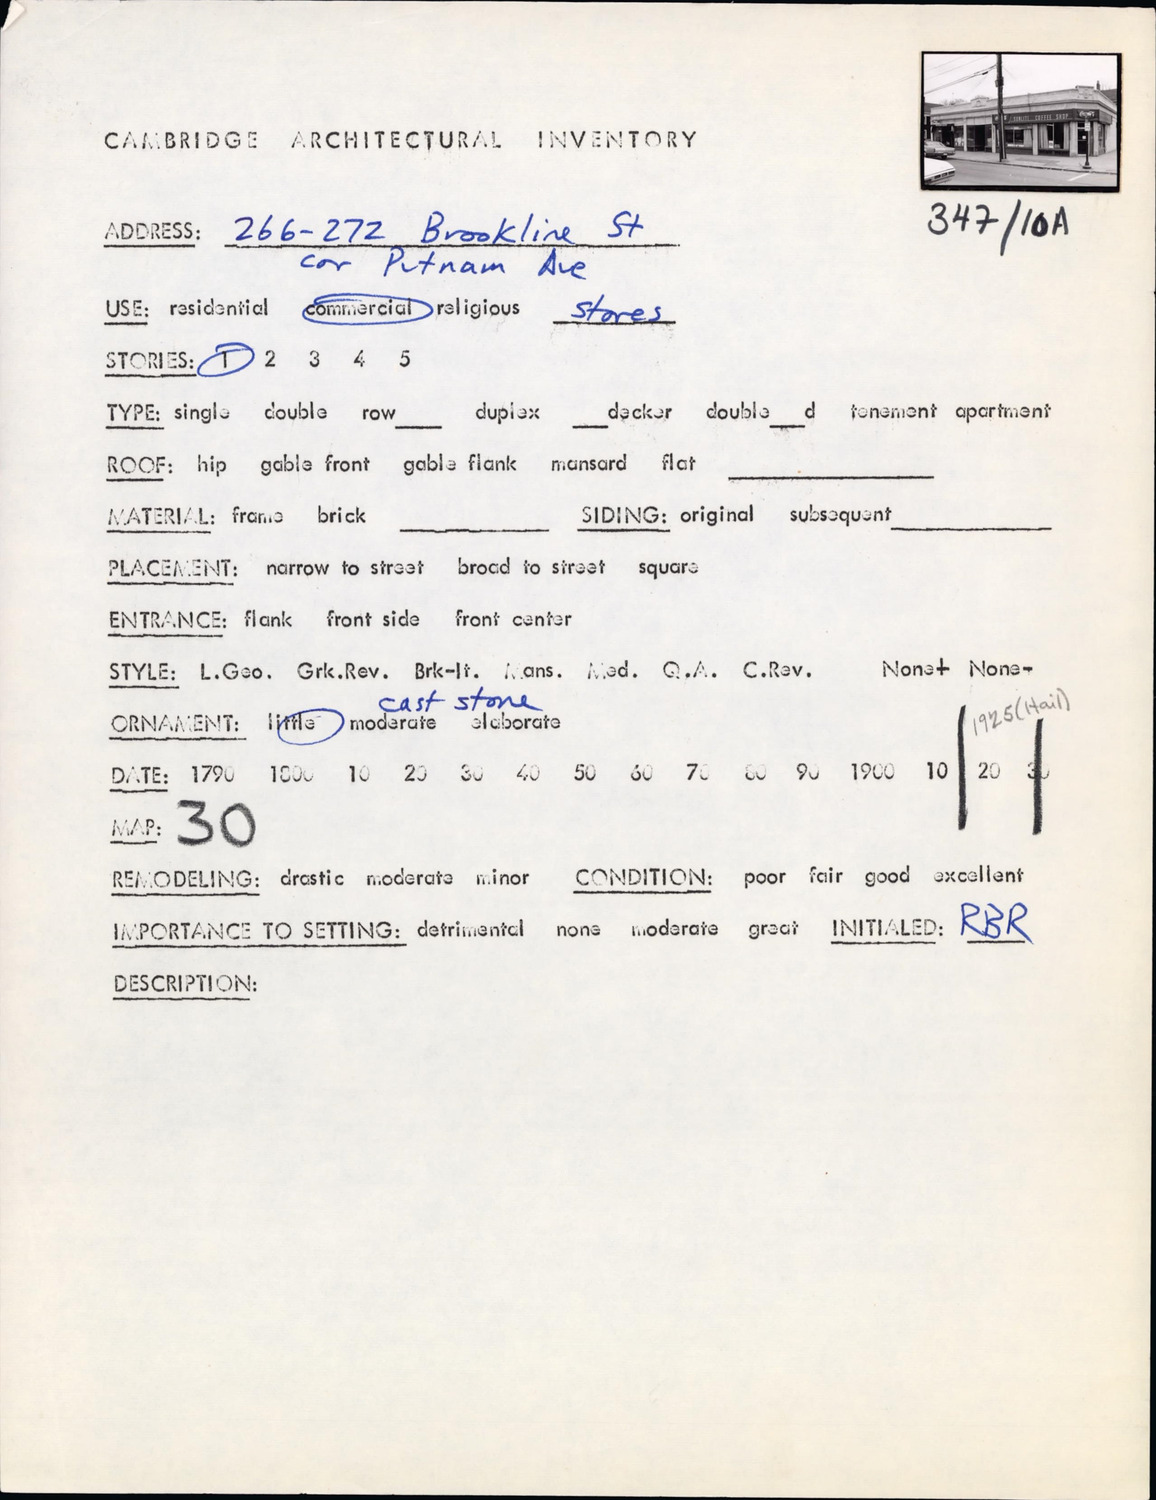 CAMBRIDGE ARCHITECTURAL INVENTORY
347/10A
ADDRESS: 266-272 Brookline St
cor Putnam Ave
USE: residential commercial religious stores
STORIES: 1 2 3 4 5
TYPE: single double row___ duplex ___decker double___d tenement apartment
ROOF: hip gable front gable flank mansard flat
MATERIAL: frame brick SIDING: original subsequent
PLACEMENT: narrow to street broad to street square
ENTRANCE: flank front side front center
STYLE: L.Geo. Grk.Rev. Brk-It. Mans. Med. Q.A. C.Rev. None+ None-
cast stone
ORNAMENT: little moderate elaborate
1925 (Hail)
DATE: 1790 1800 10 20 30 40 50 60 70 80 90 1900 10 20 30
MAP: 30
REMODELING: drastic moderate minor CONDITION: poor fair good excellent
IMPORTANCE TO SETTING: detrimental none moderate great INITIALED: RBR
DESCRIPTION: